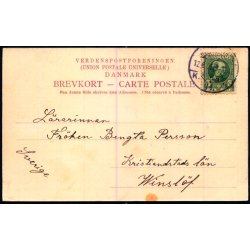 VERDENSPOSTFORENINGEN
(UNION POSTALE UNIVERSELLE)
DANMARK
BREVKORT – CARTE POSTALE
Paa denne Side skrives kun Adressen. (Côté réservé à l'adresse.)
Lärarinnan
Fröken Bengta Persson
Kristianstads län
Winslöf
Sverige